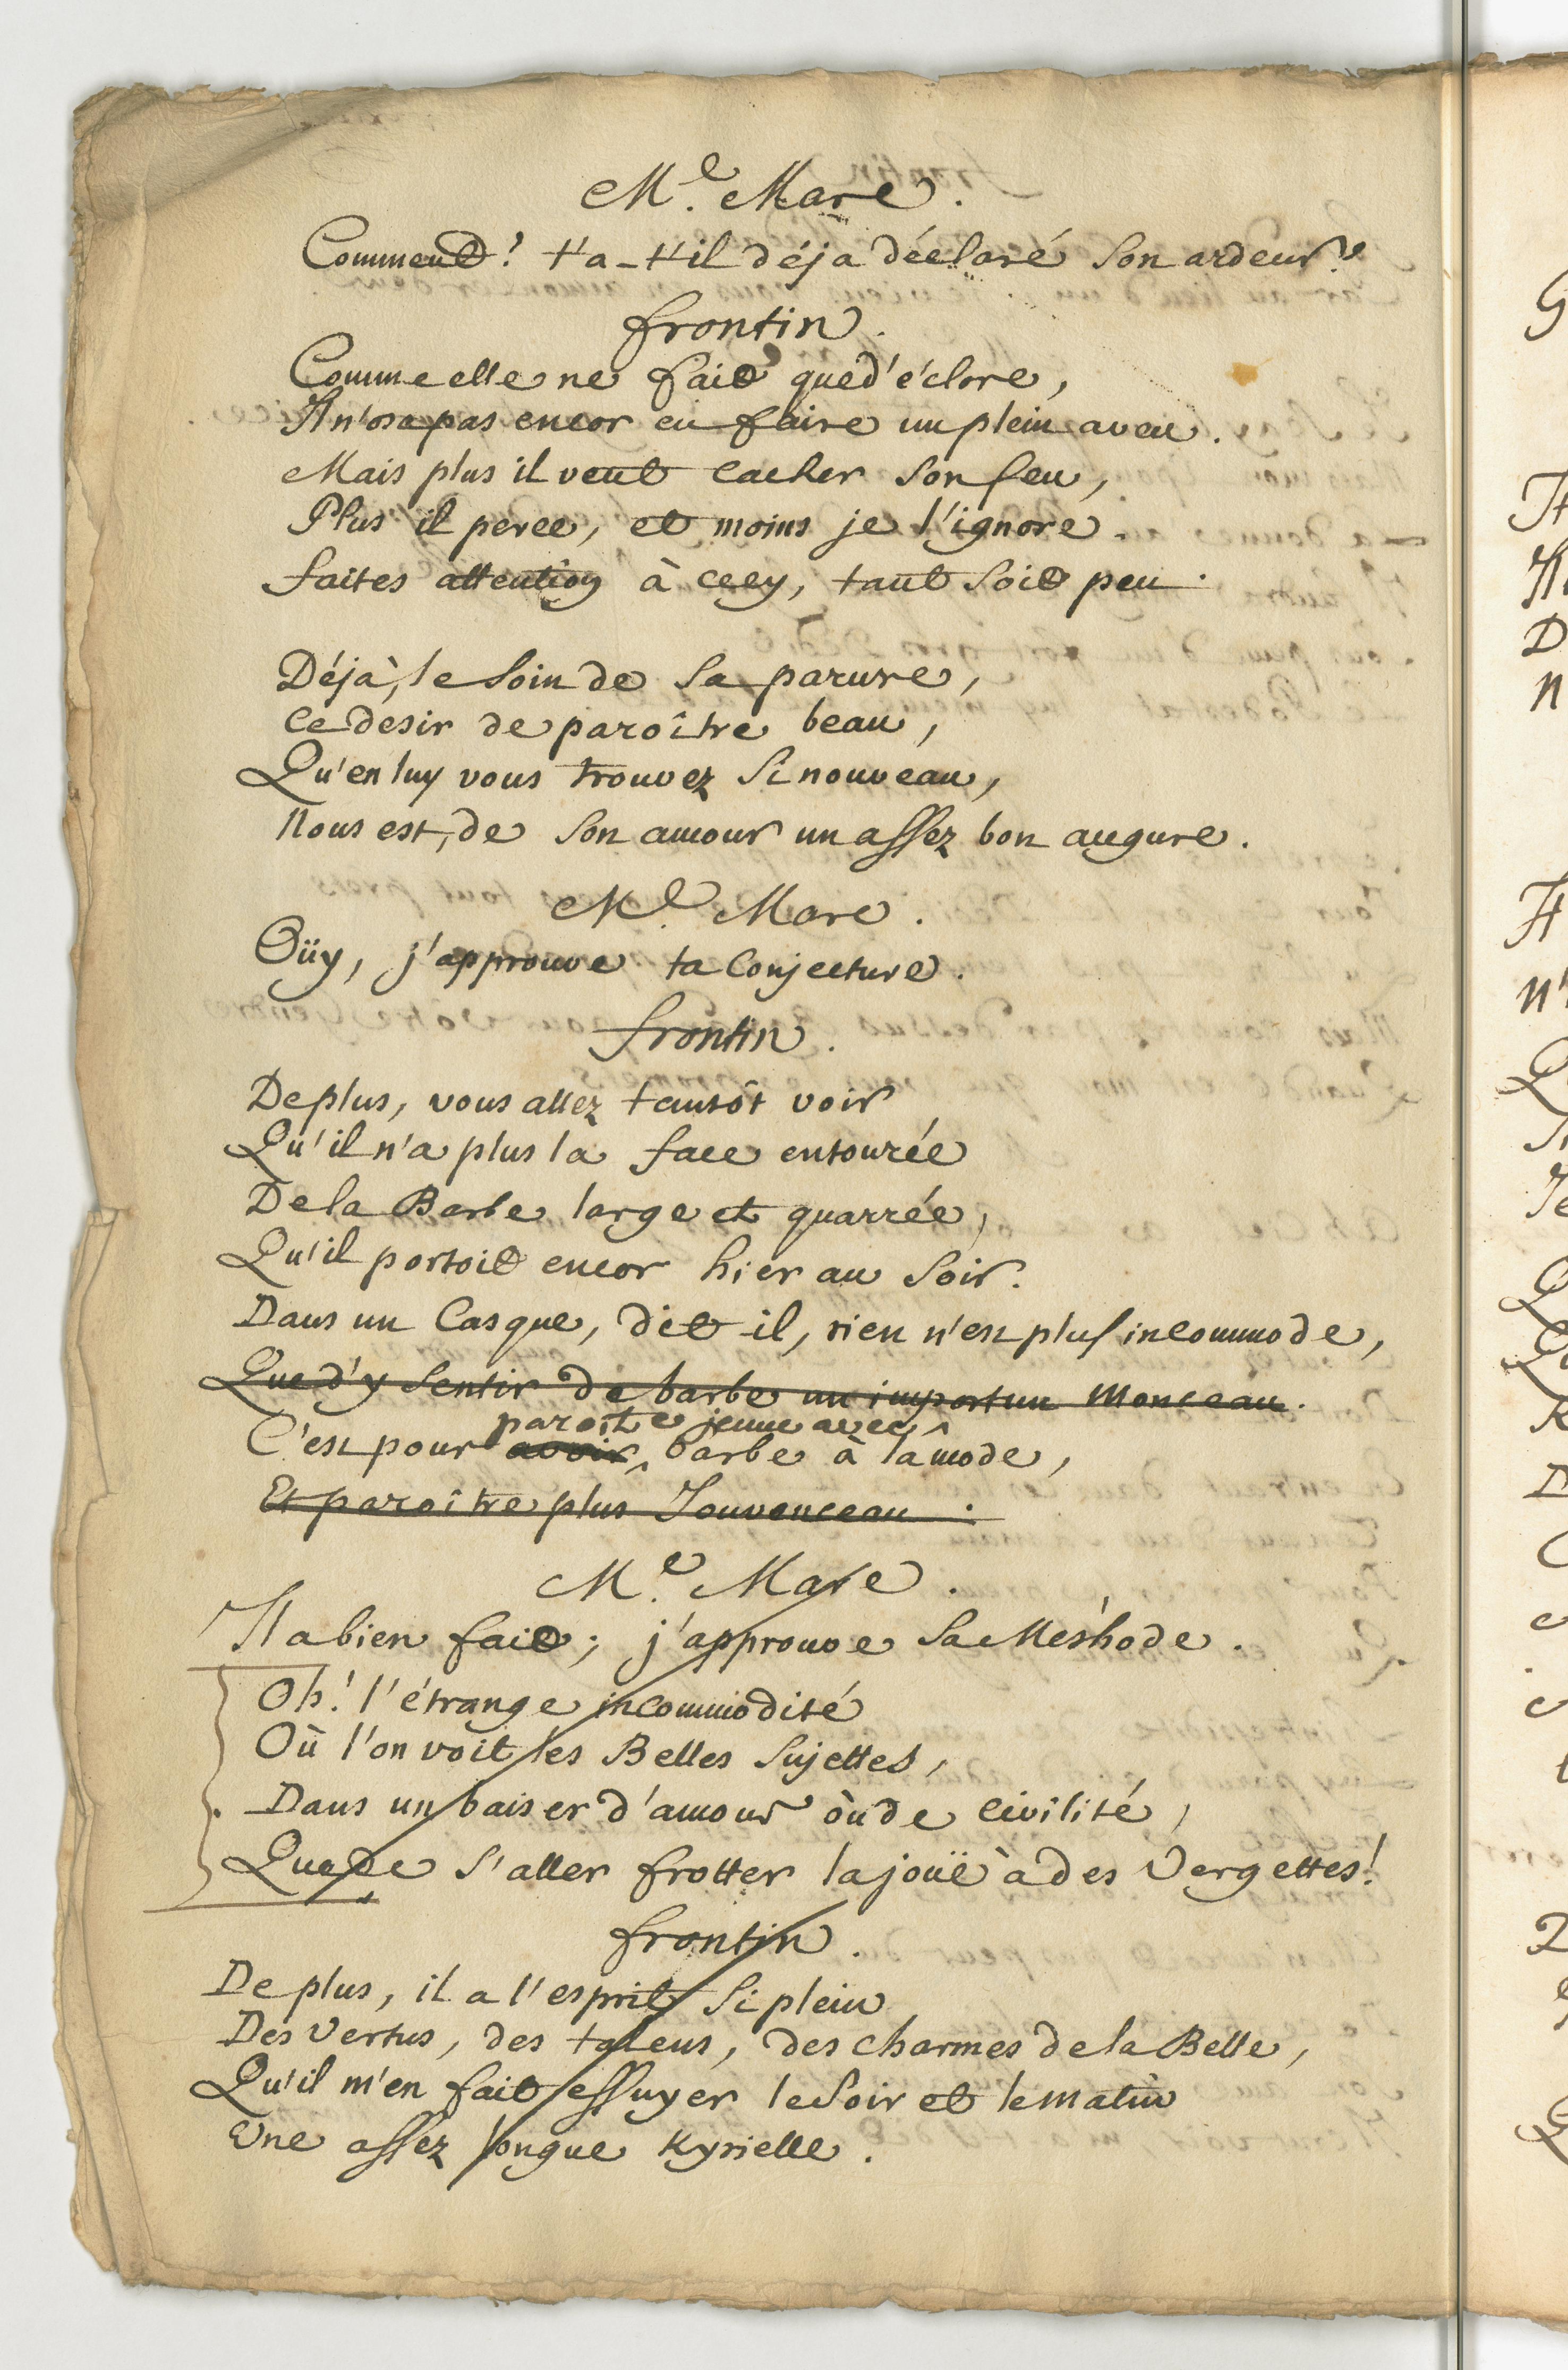 M.e Mare.
Comment! t'a-t'il déja déclaré Son ardeur?
frontin.
Comme elle ne fait que d'éclore,
Il n'ose pas encor en faire un plein aveu.
Mais plus il veut cacher Son feu,
Plus il perce, et moins je l'ignore.
faites attention à cecy, tant Soit peu.
Déjà, le Soin de Sa parure,
ce desir de paroître beau,
Qu'en luy vous trouvez Si nouveau,
Nous est, de Son amour un assez bon augure.
M.e Mare.
Oüy, j'approuve ta Conjecture.
frontin.
De plus, vous allez tantôt voir
Qu'il n'a plus la face entourée
De la Barbe large et quarrée,
Qu'il portoit encor hier au Soir.
Dans un Casque, dit-il, rien n'est plus incommode,
Que d'y Sentir de barbe un importun Monceau.
paroître jeune avec
C'est pour avoir barbe à la mode,
Et paroître plus Jouvenceau.
M.e Mare.
Il a bien fait; j'approuve Sa Méthode.
Oh! l'étrange incommodité
Où l'on voit les Belles Sujettes,
Dans un baiser d'amour òu de civilité,
Que de S'aller frotter la joüe à des Vergettes!
frontin.
De plus, il a l'esprit Si plein
Des Vertus, des talens, des charmes de la Belle,
Qu'il m'en fait essuyer le Soir et le matin
Une assez longue Kyrielle.